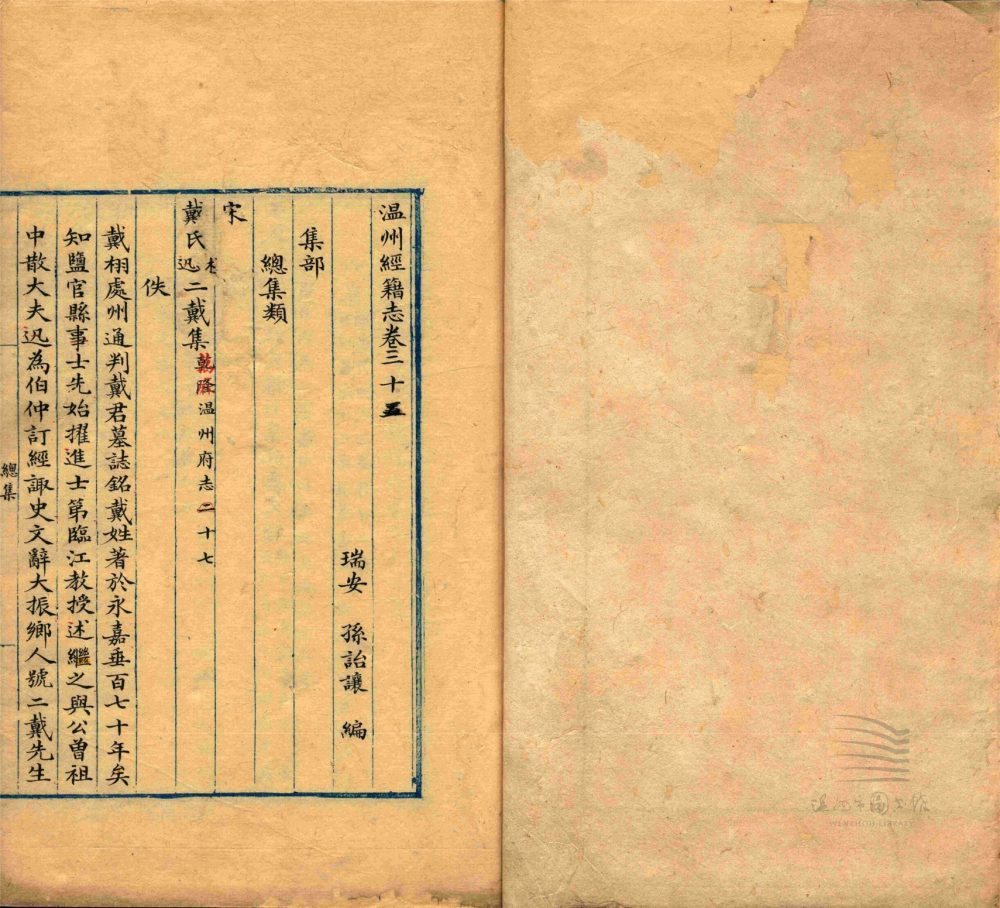 温州經籍志卷三十五
瑞安 孫詒讓 編
集部
總集類
宋
戴氏迅述二戴集乾隆温州府志二十七
佚
戴栩處州通判戴君墓誌銘戴姓著於永嘉垂百七十年矣
知鹽官縣事士先始擢進士第臨江教授述繼之與公曾祖
中散大夫迅為伯仲訂經諏史文辭大振鄉人號二戴先生
總集
温州市圖書館
WENZHOU LIBRARY